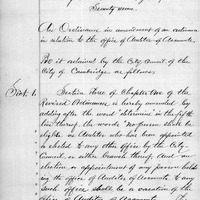 Seventy seven.
An Ordinance in amendment of an ordinance
in relation to the office of Auditor of Accounts.
Be it ordained by the City Council of the
City of Cambridge as follows:
Sect. 1. Section three of Chapter two of the
Revised Ordinances is hereby amended by
adding after the word "determine" in the fifth
line thereof, the words "no person shall be
eligible as Auditor who has been appointed
or elected to any other office by the City
Council, or either branch thereof and an
election or appointment of any person holding
the office of Auditor of Accounts to any
such office, shall be a vacation of the
office of Auditor of Accounts.